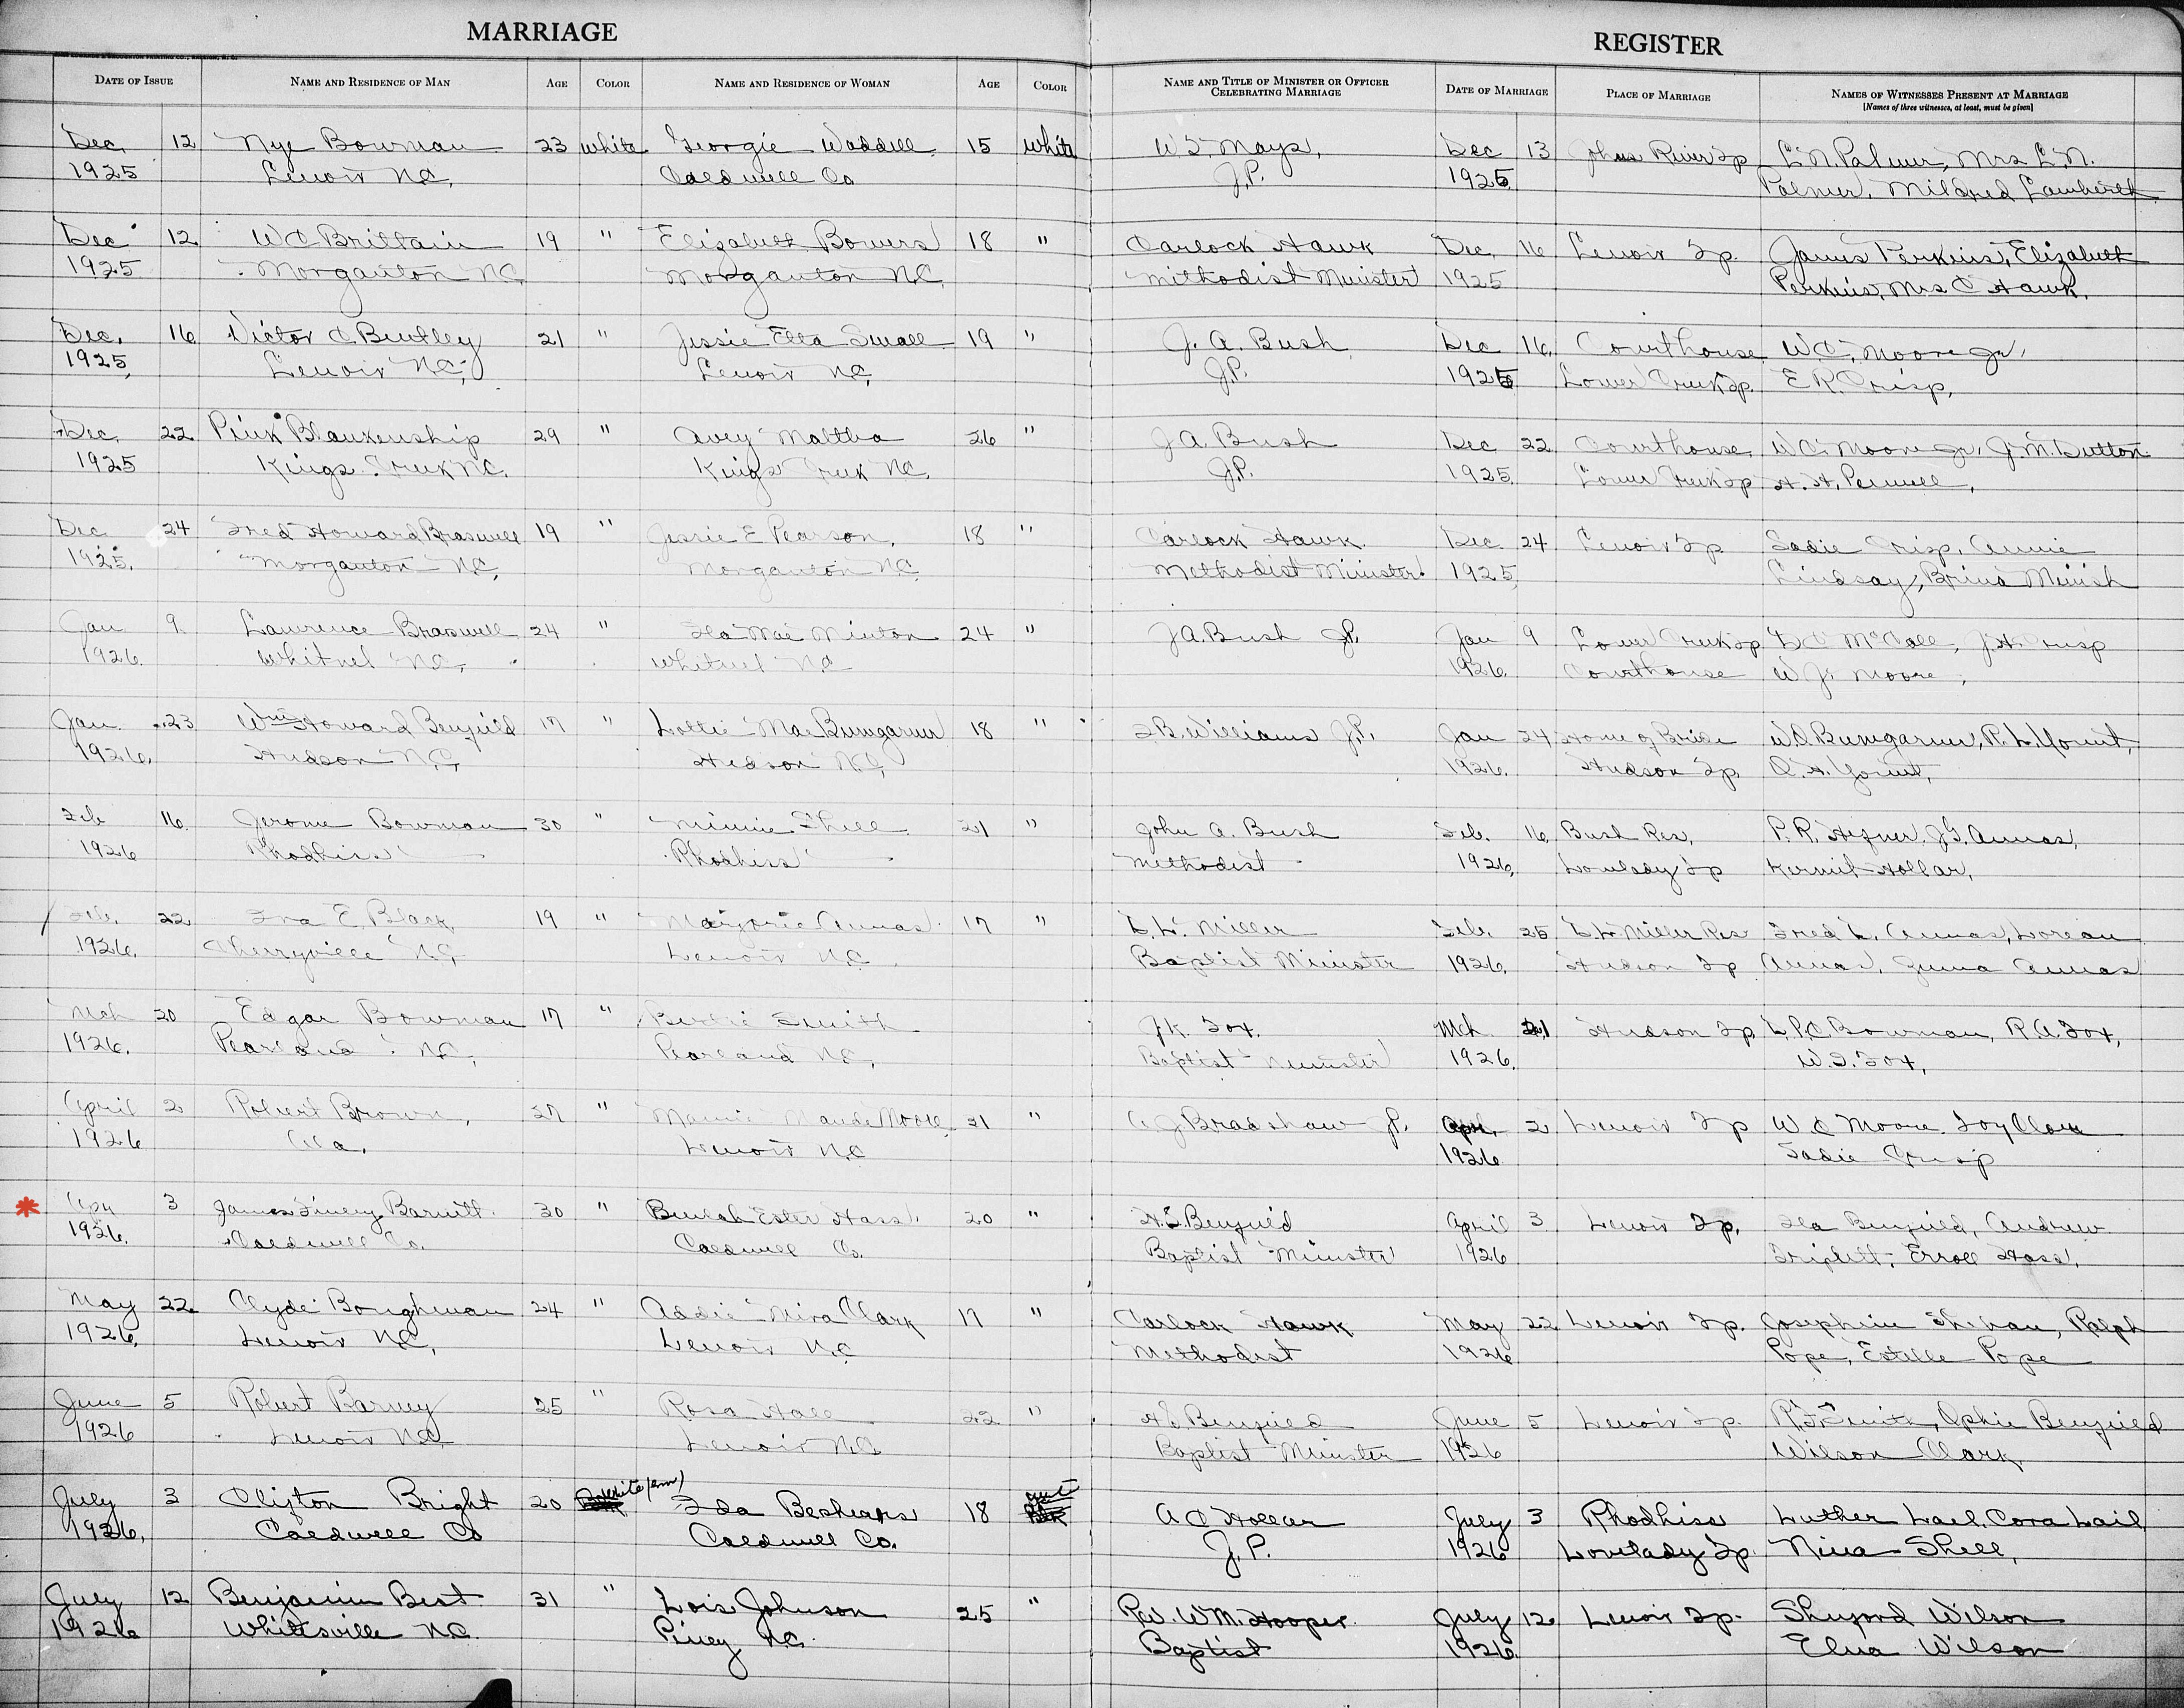 MARRIAGE
REGISTER
DATE OF ISSUE NAME AND RESIDENCE OF MAN AGE COLOR NAME AND RESIDENCE OF WOMAN AGE COLOR NAME AND TITLE OF MINISTER OR OFFICER CELEBRATING MARRIAGE DATE OF MARRIAGE PLACE OF MARRIAGE NAMES OF WITNESSES PRESENT AT MARRIAGE
[Names of three witnesses, at least, must be given]
Dec. 12 Nye Bowman 23 white Georgie Waddell 15 white W.S. Mays, Dec 13 Johns River Tp L.N. Palmer, Mrs L.N.
1925 Lenoir N.C. Caldwell Co J.P. 1925 Palmer, Mildred Lamberth
Dec 12 W C Brittain 19 " Elizabeth Bowers 18 " Carlock Hawk Dec. 16 Lenoir Tp. James Perkins, Elizabeth
1925 Morganton NC Morganton N.C. Methodist Minister 1925 Perkins, Mrs C Hawk.
Dec. 16 Victor C Bentley 21 " Jessie Etta Small 19 " J. A. Bush Dec 16 Courthouse W.C. Moore Jr,
1925 Lenoir N.C. Lenoir N.C. J.P. 1925 Lower Creek Tp. E.R. Crisp,
Dec. 22 Pink Blankenship 29 " Avey Maltba 26 " J A. Bush Dec 22 Courthouse, W.C. Moore Jr, J.M. Dutton
1925 Kings Creek N.C. Kings Creek N.C. J.P. 1925 Lower Creek Tp H. H. Pennell,
Dec 24 Fred Howard Braswell 19 " Jessie E Pearson 18 " Carlock Hawk Dec. 24 Lenoir Tp Sadie Crisp, Annie
1925. Morganton N.C. Morganton N.C. Methodist Minister 1925 Lindsay, Minish
Jan 9 Lawrence Braswell 24 " Ila Mae Minton 24 " J.A. Bush J.P. Jan 9 Lower Creek Tp. D C McCall, J.H. Crisp
1926. Whitnel N.C. Whitnel N.C. 1926. Courthouse W J. Moore,
Jan. 23 Wm Howard Benfield 17 " Lottie Mae Bumgarner 18 " Williams J.P. Jan 24 Home of Bride W.D. Bumgarner, R.L. Yount,
1926. Hudson N.C. Hudson N.C. 1926. Hudson Tp. Yount,
Feb 16 Jerome Bowman 30 " Minnie Shell 21 " John A. Bush Feb. 16 Bush Res, P. R. Hefner, J.G. Annas,
1926 Rhodhiss Rhodhiss Methodist 1926. Lovelady Tp Kermit Hollar,
Feb. 22 Ira E. Black 19 " Marjorie Annas 17 " L.L. Miller Feb. 25 L.L. Miller Res Fred L. Annas, Loreau
1926. Cherryville N.C. Lenoir N.C. Baptist Minister 1926. Hudson Tp Annas, Annas
Mch 20 Edgar Bowman 17 " Bertie Smith J.K. Fox. Mch 21 Hudson Tp. L.P.C. Bowman, R.A. Fox,
1926. N.C. N.C. Baptist Minister 1926. W.S. Fox,
April 2 Robert Brown, 27 " Mamie Maude Moore 21 " Bradshaw J.P. Apr. 2 Lenoir Tp W C Moore Foy Cloer
1926 Lenoir N.C 1926 Sadie Crisp
Apr 3 James Finley Barnett 30 " Beulah Ester Hass, 20 " Benfield April 3 Lenoir Tp. Ila Benfield, Andrew
1926. Caldwell Co. Caldwell Co. Baptist Minister 1926 Triplett, Erroll Hass.
May 22 Clyde Boughman 24 " Addie Mira Clark 17 " Carlock Hawk May 22 Lenoir Tp. Josephine Shehan, Ralph
1926. Lenoir N.C. Lenoir N.C Methodist 1926 Pope, Estelle Pope
June 5 Robert Barney 25 " Rosa Hall 22 " Benfield June 5 Lenoir Tp. Smith, Ophie Benfield
1926 Lenoir N.C. Lenoir N.C. Baptist Minister 1926 Wilson Clark
July 3 Clifton Bright 20 white Ida Beshears 18 white A C Hollar July 3 Rhodhiss Luther Lail, Cora Lail
1926. Caldwell Co Caldwell Co. J.P. 1926 Lovelady Tp. Nina Shell,
July 12 Benjamin Best 31 " Lois Johnson 25 " Rev. W.M. Hooper July 12 Lenoir Tp. Shuford Wilson
1926 Whitesville N.C. Piney N.C. Baptist 1926. Elva Wilson